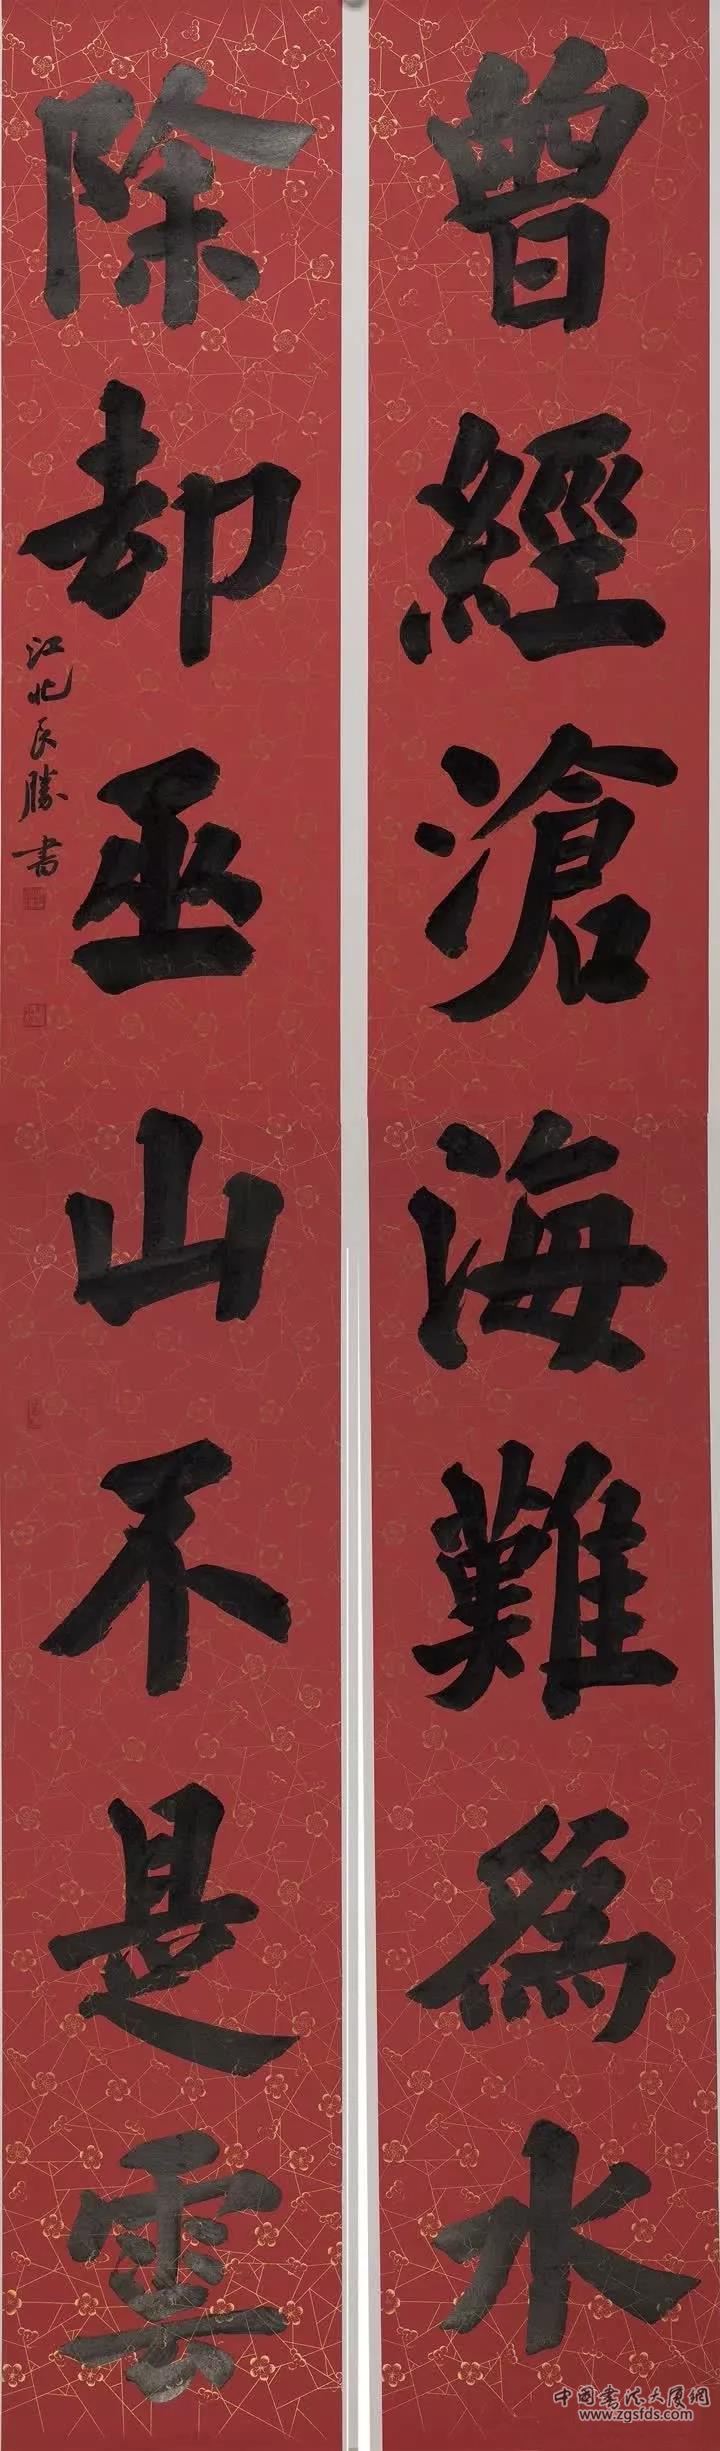 曾經滄海難為水
除却巫山不是雲
江北民勝書
中国书法大厦網
www.zgsfds.com